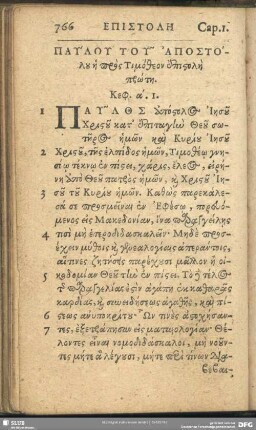 766 ΕΠΙΣΤΟΛΗ Cap.1.
ΠΑΥΛΟΥ ΤΟΥ ἈΠΟΣΤΌ-
λου ἡ πρὸς Τιμόθεον ἐπιστολὴ
πρώτη.
Κεφ. α΄. 1.
1 ΠΑΥΛΟΣ ἀπόστολος Ἰησοῦ
Χριστοῦ κατ' ἐπιταγὴν Θεοῦ σω-
τῆρος ἡμῶν καὶ Κυρίου Ἰησοῦ
2 Χριστοῦ, τῆς ἐλπίδος ἡμῶν, Τιμοθέῳ γνη-
σίῳ τέκνῳ ἐν πίστει, χάρις, ἔλεος, εἰρή-
νη ἀπὸ Θεοῦ πατρὸς ἡμῶν, καὶ Χριστοῦ Ἰη-
3 σοῦ τοῦ Κυρίου ἡμῶν. Καθὼς παρεκάλε-
σά σε προσμεῖναι ἐν Ἐφέσῳ, πορευό-
μενος εἰς Μακεδονίαν, ἵνα παραγγείλῃς
4 τισὶ μὴ ἑτεροδιδασκαλεῖν· Μηδὲ προσ-
έχειν μύθοις καὶ γενεαλογίαις ἀπεράντοις,
αἵτινες ζητήσεις παρέχουσι μᾶλλον ἢ οἰ-
5 κοδομίαν Θεοῦ τὴν ἐν πίστει. Τὸ δὲ τέλος
τῆς παραγγελίας ἐστὶν ἀγάπη ἐκ καθαρᾶς
καρδίας, καὶ συνειδήσεως ἀγαθῆς, καὶ πί-
6 στεως ἀνυποκρίτου· Ὧν τινὲς ἀστοχήσαν-
7 τες, ἐξετράπησαν εἰς ματαιολογίαν· Θέ-
λοντες εἶναι νομοδιδάσκαλοι, μὴ νοοῦν-
τες μήτε ἃ λέγουσι, μήτε περὶ τίνων δια-
βεβαι-
SLUB
DFG